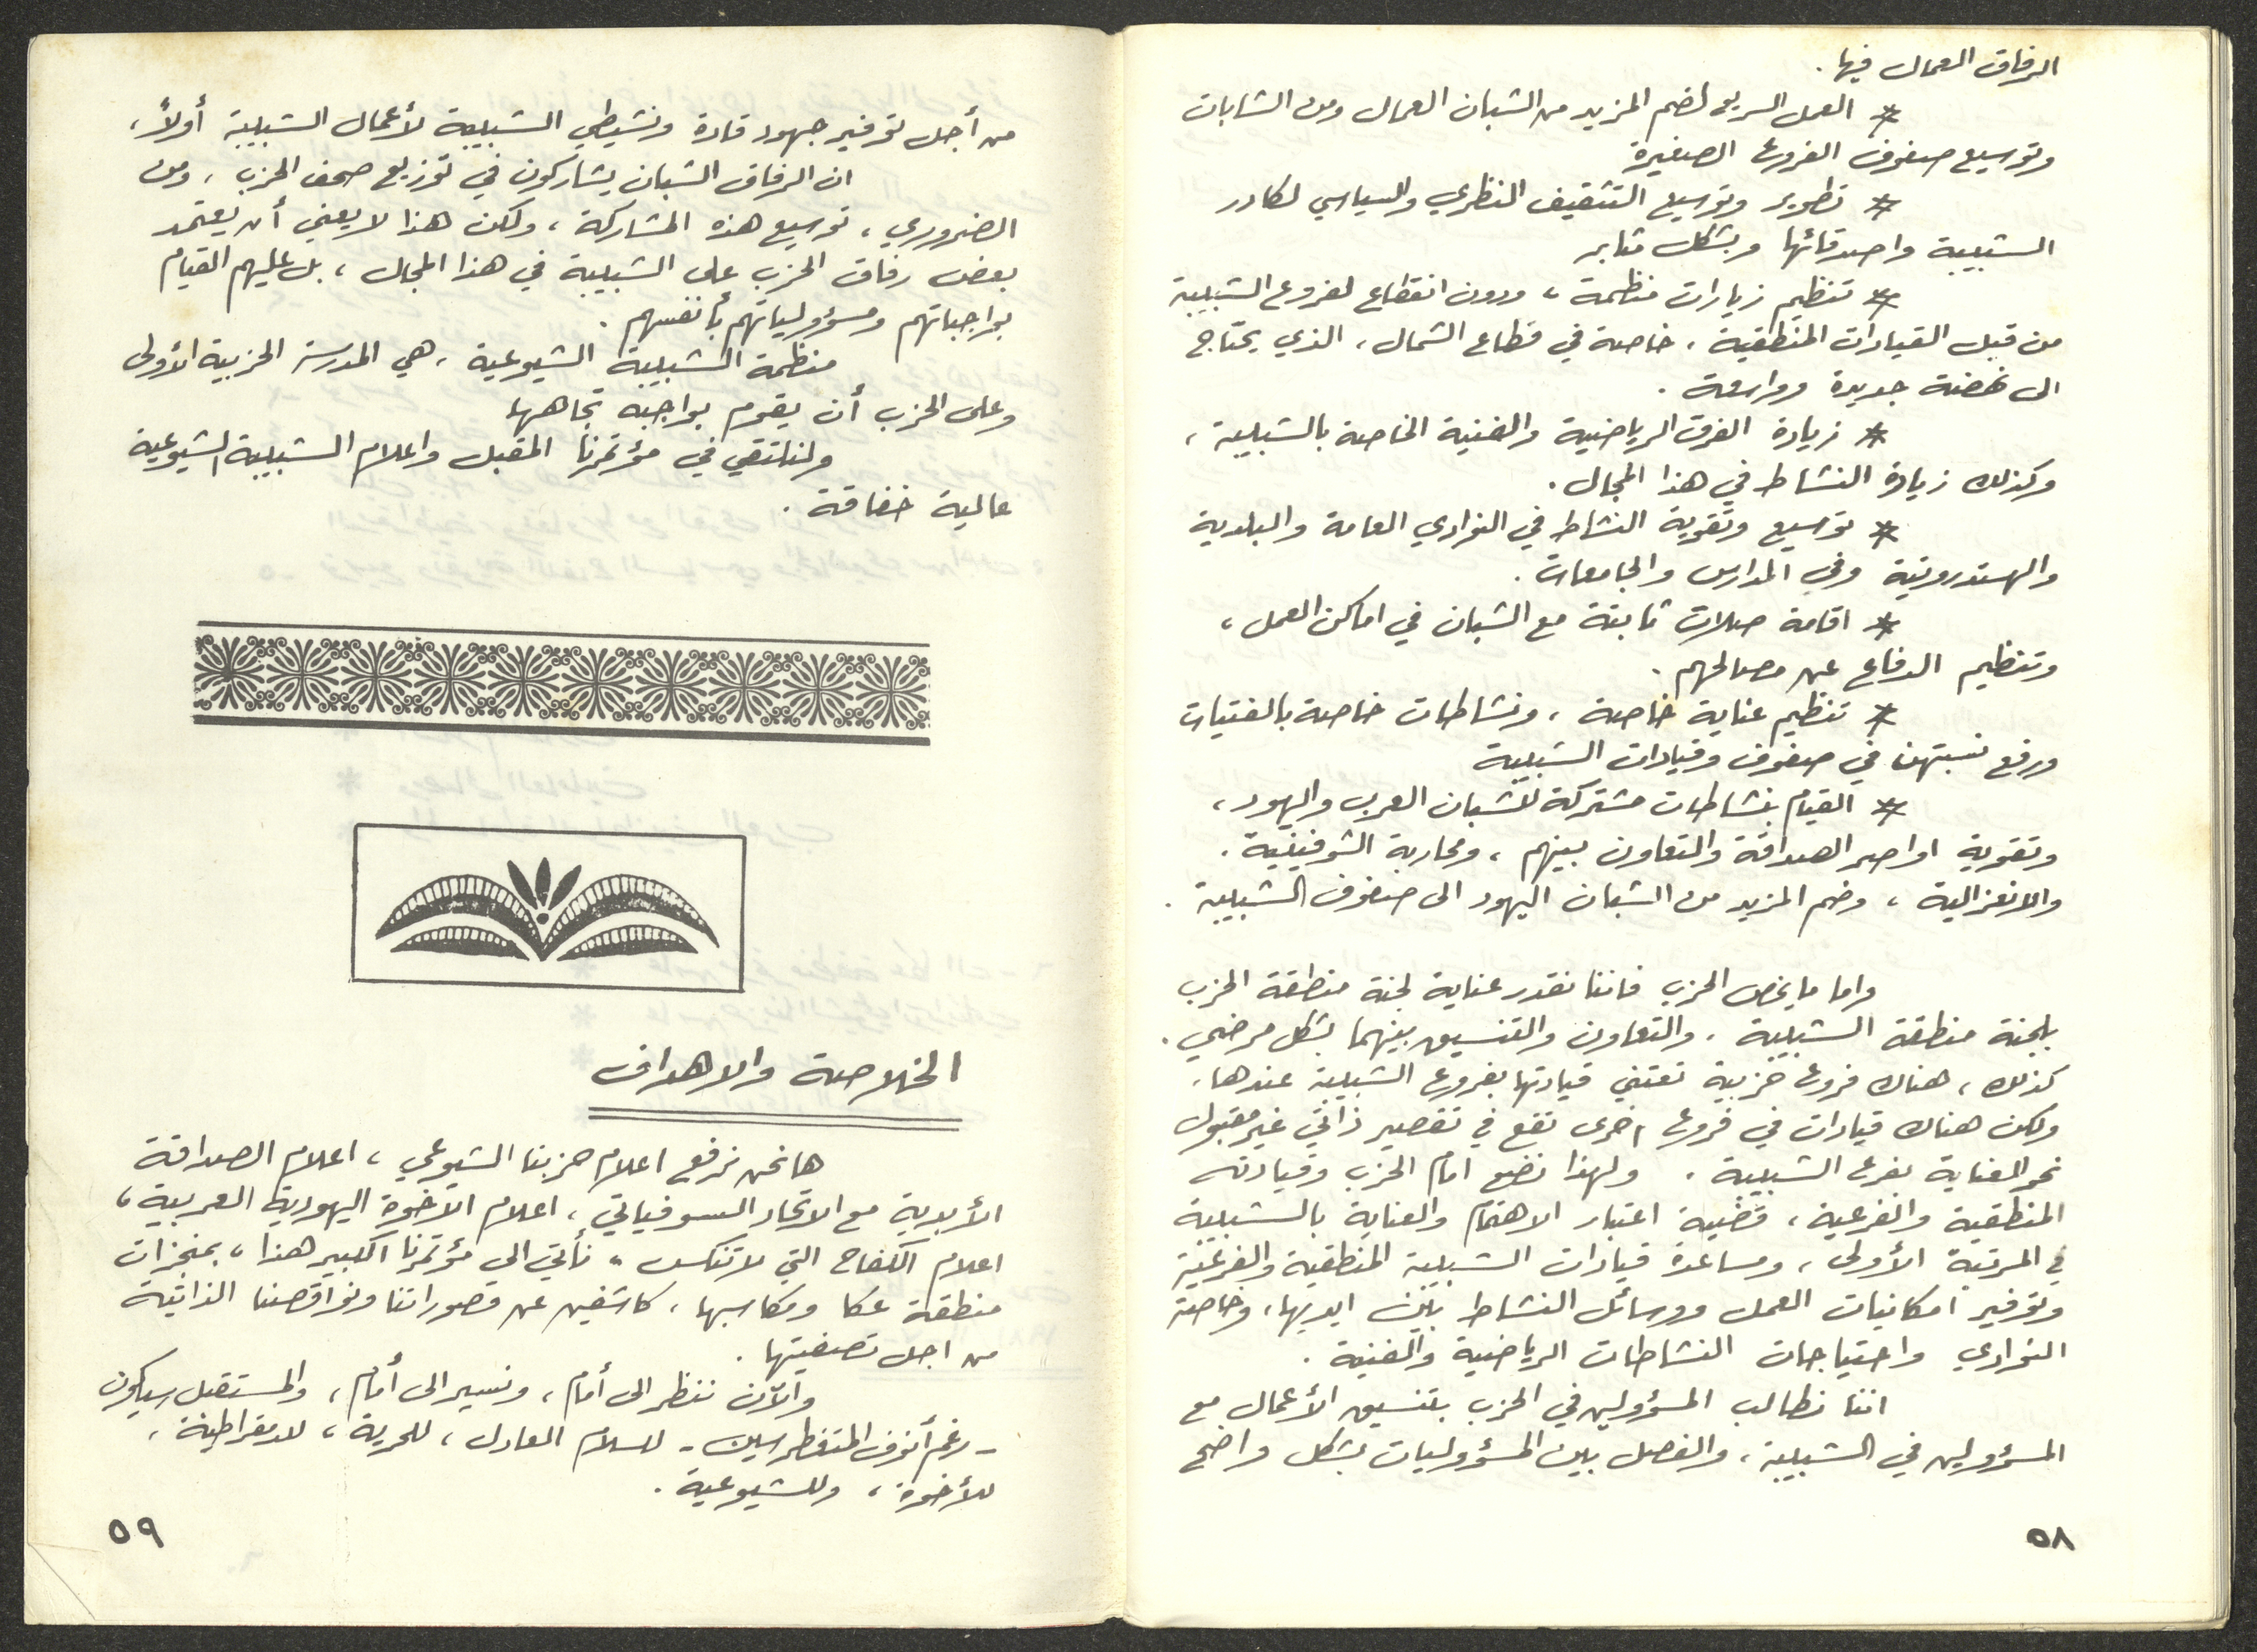 الرفاق العمال فيها.
* العمل السريع لضم المزيد من الشبان العمال ومن الشابات
وتوسيع صفوف الفروع الصغيرة
* تطوير وتوسيع التثقيف النظري والسياسي لكادر
الشبيبة واصدقائها وبشكل مثابر
* تنظيم زيارات منظمة، ودون انقطاع لفروع الشبيبة
من قبل القيادات المنطقية، خاصة في قطاع الشمال، الذي يحتاج
الى نهضة جديدة وواسعة.
* زيادة الفرق الرياضية والفنية الخاصة بالشبيبة،
وكذلك زيادة النشاط في هذا المجال.
* توسيع وتقوية النشاط في النوادي العامة والبلدية
والهستدروتية وفي المدارس والجامعات.
* اقامة صلات ثابتة مع الشبان في اماكن العمل،
وتنظيم الدفاع عن مصالحهم.
* تنظيم عناية خاصة، ونشاطات خاصة بالفتيات
ورفع نسبتهن في صفوف وقيادات الشبيبة
* القيام بنشاطات مشتركة للشبان العرب واليهود،
وتقوية اواصر الصداقة والتعاون بينهم، ومحاربة الشوفينية.
والانعزالية، وضم المزيد من الشبان اليهود الى صفوف الشبيبة.
واما ما يخص الحزب فاننا نقدر عناية لجنة منطقة الحزب
بلجنة منطقة الشبيبة. والتعاون والتنسيق بينهما بشكل مرضي.
كذلك، هناك فروع حزبية تعتني قيادتها بفروع الشبيبة عندها،
ولكن هناك قيادات في فروع اخرى تقع في تقصير ذاتي غير مقبول
نحو العناية بفرع الشبيبة. ولهذا نضع امام الحزب وقيادته
المنطقية والفرعية، قضية اعتبار الاهتمام والعناية بالشبيبة
في المرتبة الأولى، ومساعدة قيادات الشبيبة المنطقية والفرعية
وتوفير امكانيات العمل ووسائل النشاط بين ايديها، وخاصة
النوادي واحتياجات النشاطات الرياضية والفنية.
اننا نطالب المسؤولين في الحزب بتنسيق الأعمال مع
المسؤولين في الشبيبة، والفصل بين المسؤوليات بشكل واضح
٥٨
من أجل توفير جهود قادة ونشيطي الشبيبة لأعمال الشبيبة أولاً،
ان الرفاق الشبان يشاركون في توزيع صحف الحزب، ومن
الضروري، توسيع هذه المشاركة، ولكن هذا لا يعني أن يعتمد
بعض رفاق الحزب على الشبيبة في هذا المجال، بل عليهم القيام
بواجباتهم ومسؤولياتهم بأنفسهم.
منظمة الشبيبة الشيوعية، هي المدرسة الحزبية الأولى
وعلى الحزب أن يقوم بواجبه تجاهها
ولنلتقي في مؤتمرنا المقبل واعلام الشبيبة الشيوعية
عالية خفاقة.
الخلاصة والاهداف
ها نحن نرفع اعلام حزبنا الشيوعي، اعلام الصداقة
الأبدية مع الاتحاد السوفياتي، اعلام الاخوة اليهودية العربية،
اعلام الكفاح التي لا تنكس، نأتي الى مؤتمرنا الكبير هذا، بمنجزات
منطقة عكا ومكاسبها، كاشفين عن قصوراتنا ونواقصنا الذاتية
من اجل تصفيتها.
والآن ننظر الى أمام، ونسير الى أمام، والمستقبل سيكون
- رغم أنوف المتغطرسين - للسلام العادل، للحرية، للدمقراطية،
للأخوة، وللشيوعية.
٥٩